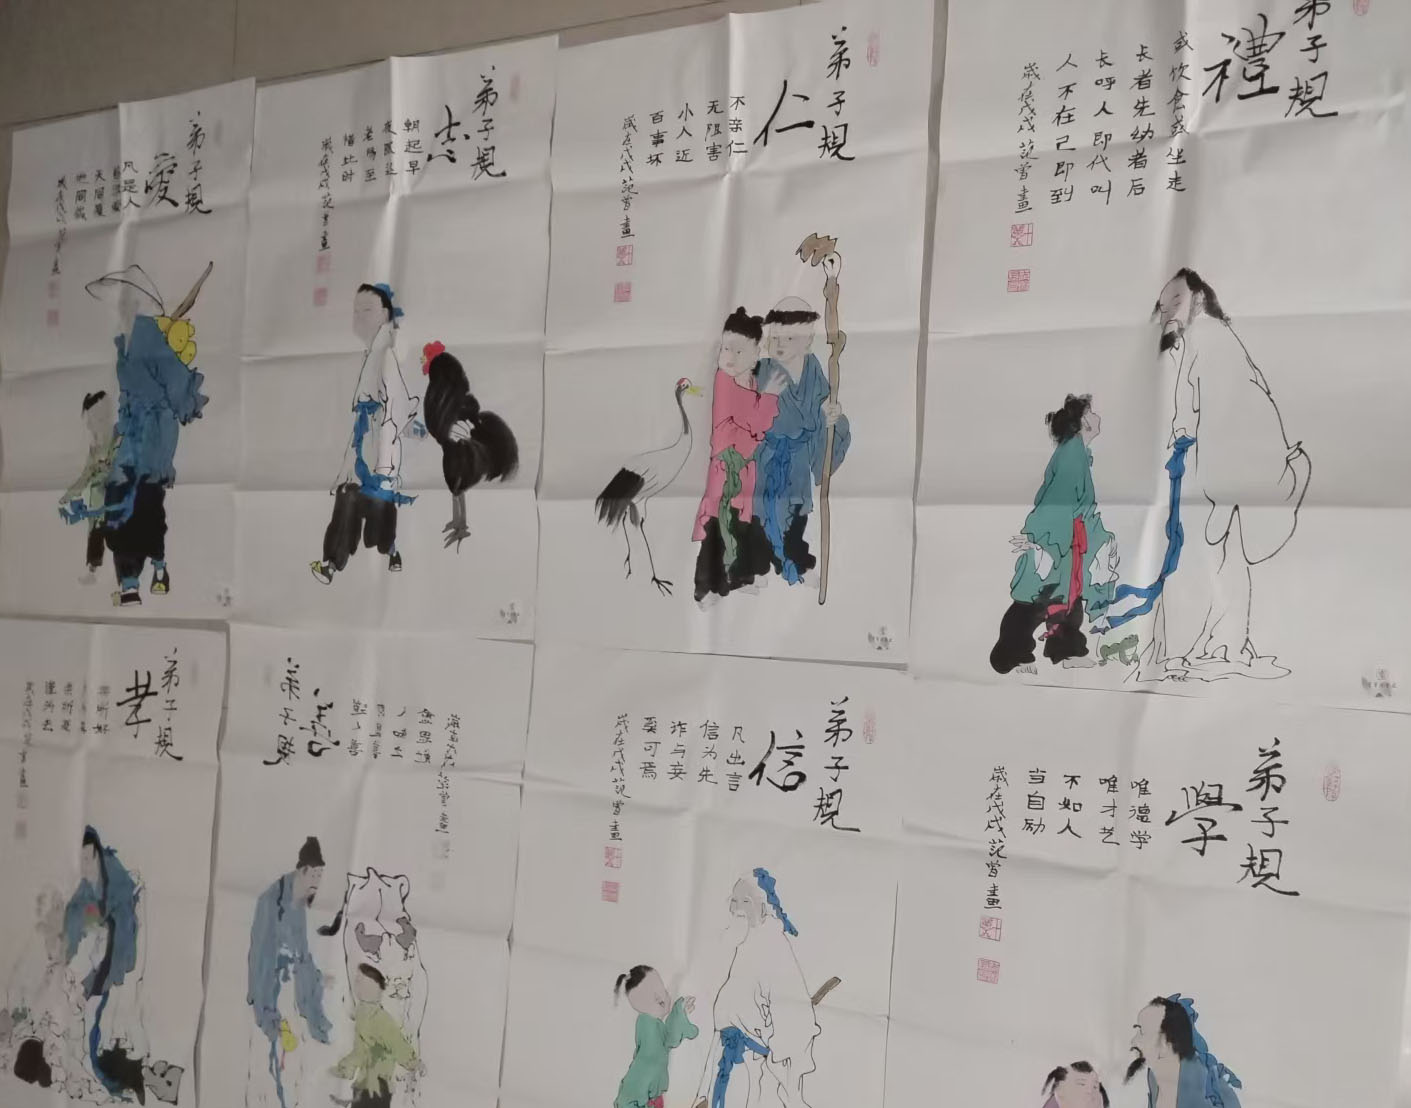 弟子規
愛
凡是人
皆須愛
天同覆
地同載
歲在戊戌范曾畫
弟子規
志
朝起早
夜眠遲
老易至
惜此时
歲在戊戌范曾畫
弟子規
仁
不亲仁
无限害
小人近
百事坏
歲在戊戌范曾畫
弟子規
禮
或饮食或坐走
长者先幼者后
长呼人即代叫
人不在己即到
歲在戊戌范曾畫
弟子規
孝
弟子規
弟子規
信
凡出言
信为先
诈与妄
奚可焉
歲在戊戌范曾畫
弟子規
學
唯德学
唯才艺
不如人
当自励
歲在戊戌范曾畫